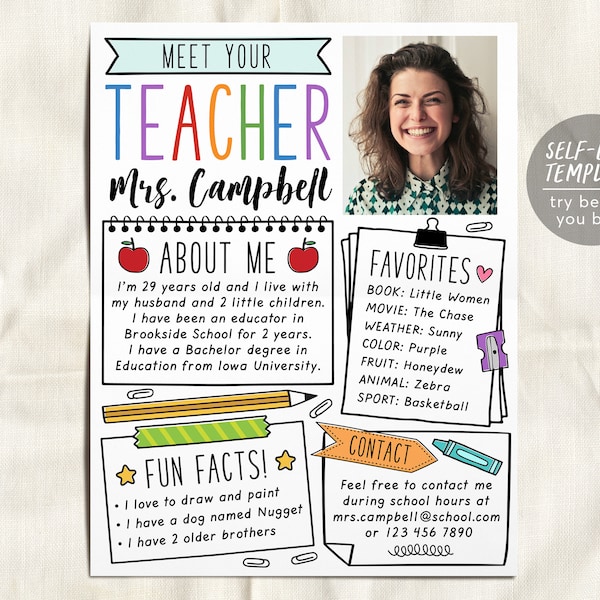 MEET YOUR
TEACHER
Mrs. Campbell
ABOUT ME
I'm 29 years old and I live with
my husband and 2 little children.
I have been an educator in
Brookside School for 2 years.
I have a Bachelor degree in
Education from Iowa University.
FAVORITES
BOOK: Little Women
MOVIE: The Chase
WEATHER: Sunny
COLOR: Purple
FRUIT: Honeydew
ANIMAL: Zebra
SPORT: Basketball
FUN FACTS!
• I love to draw and paint
• I have a dog named Nugget
• I have 2 older brothers
CONTACT
Feel free to contact me
during school hours at
mrs.campbell@school.com
or 123 456 7890
SELF-
try
you